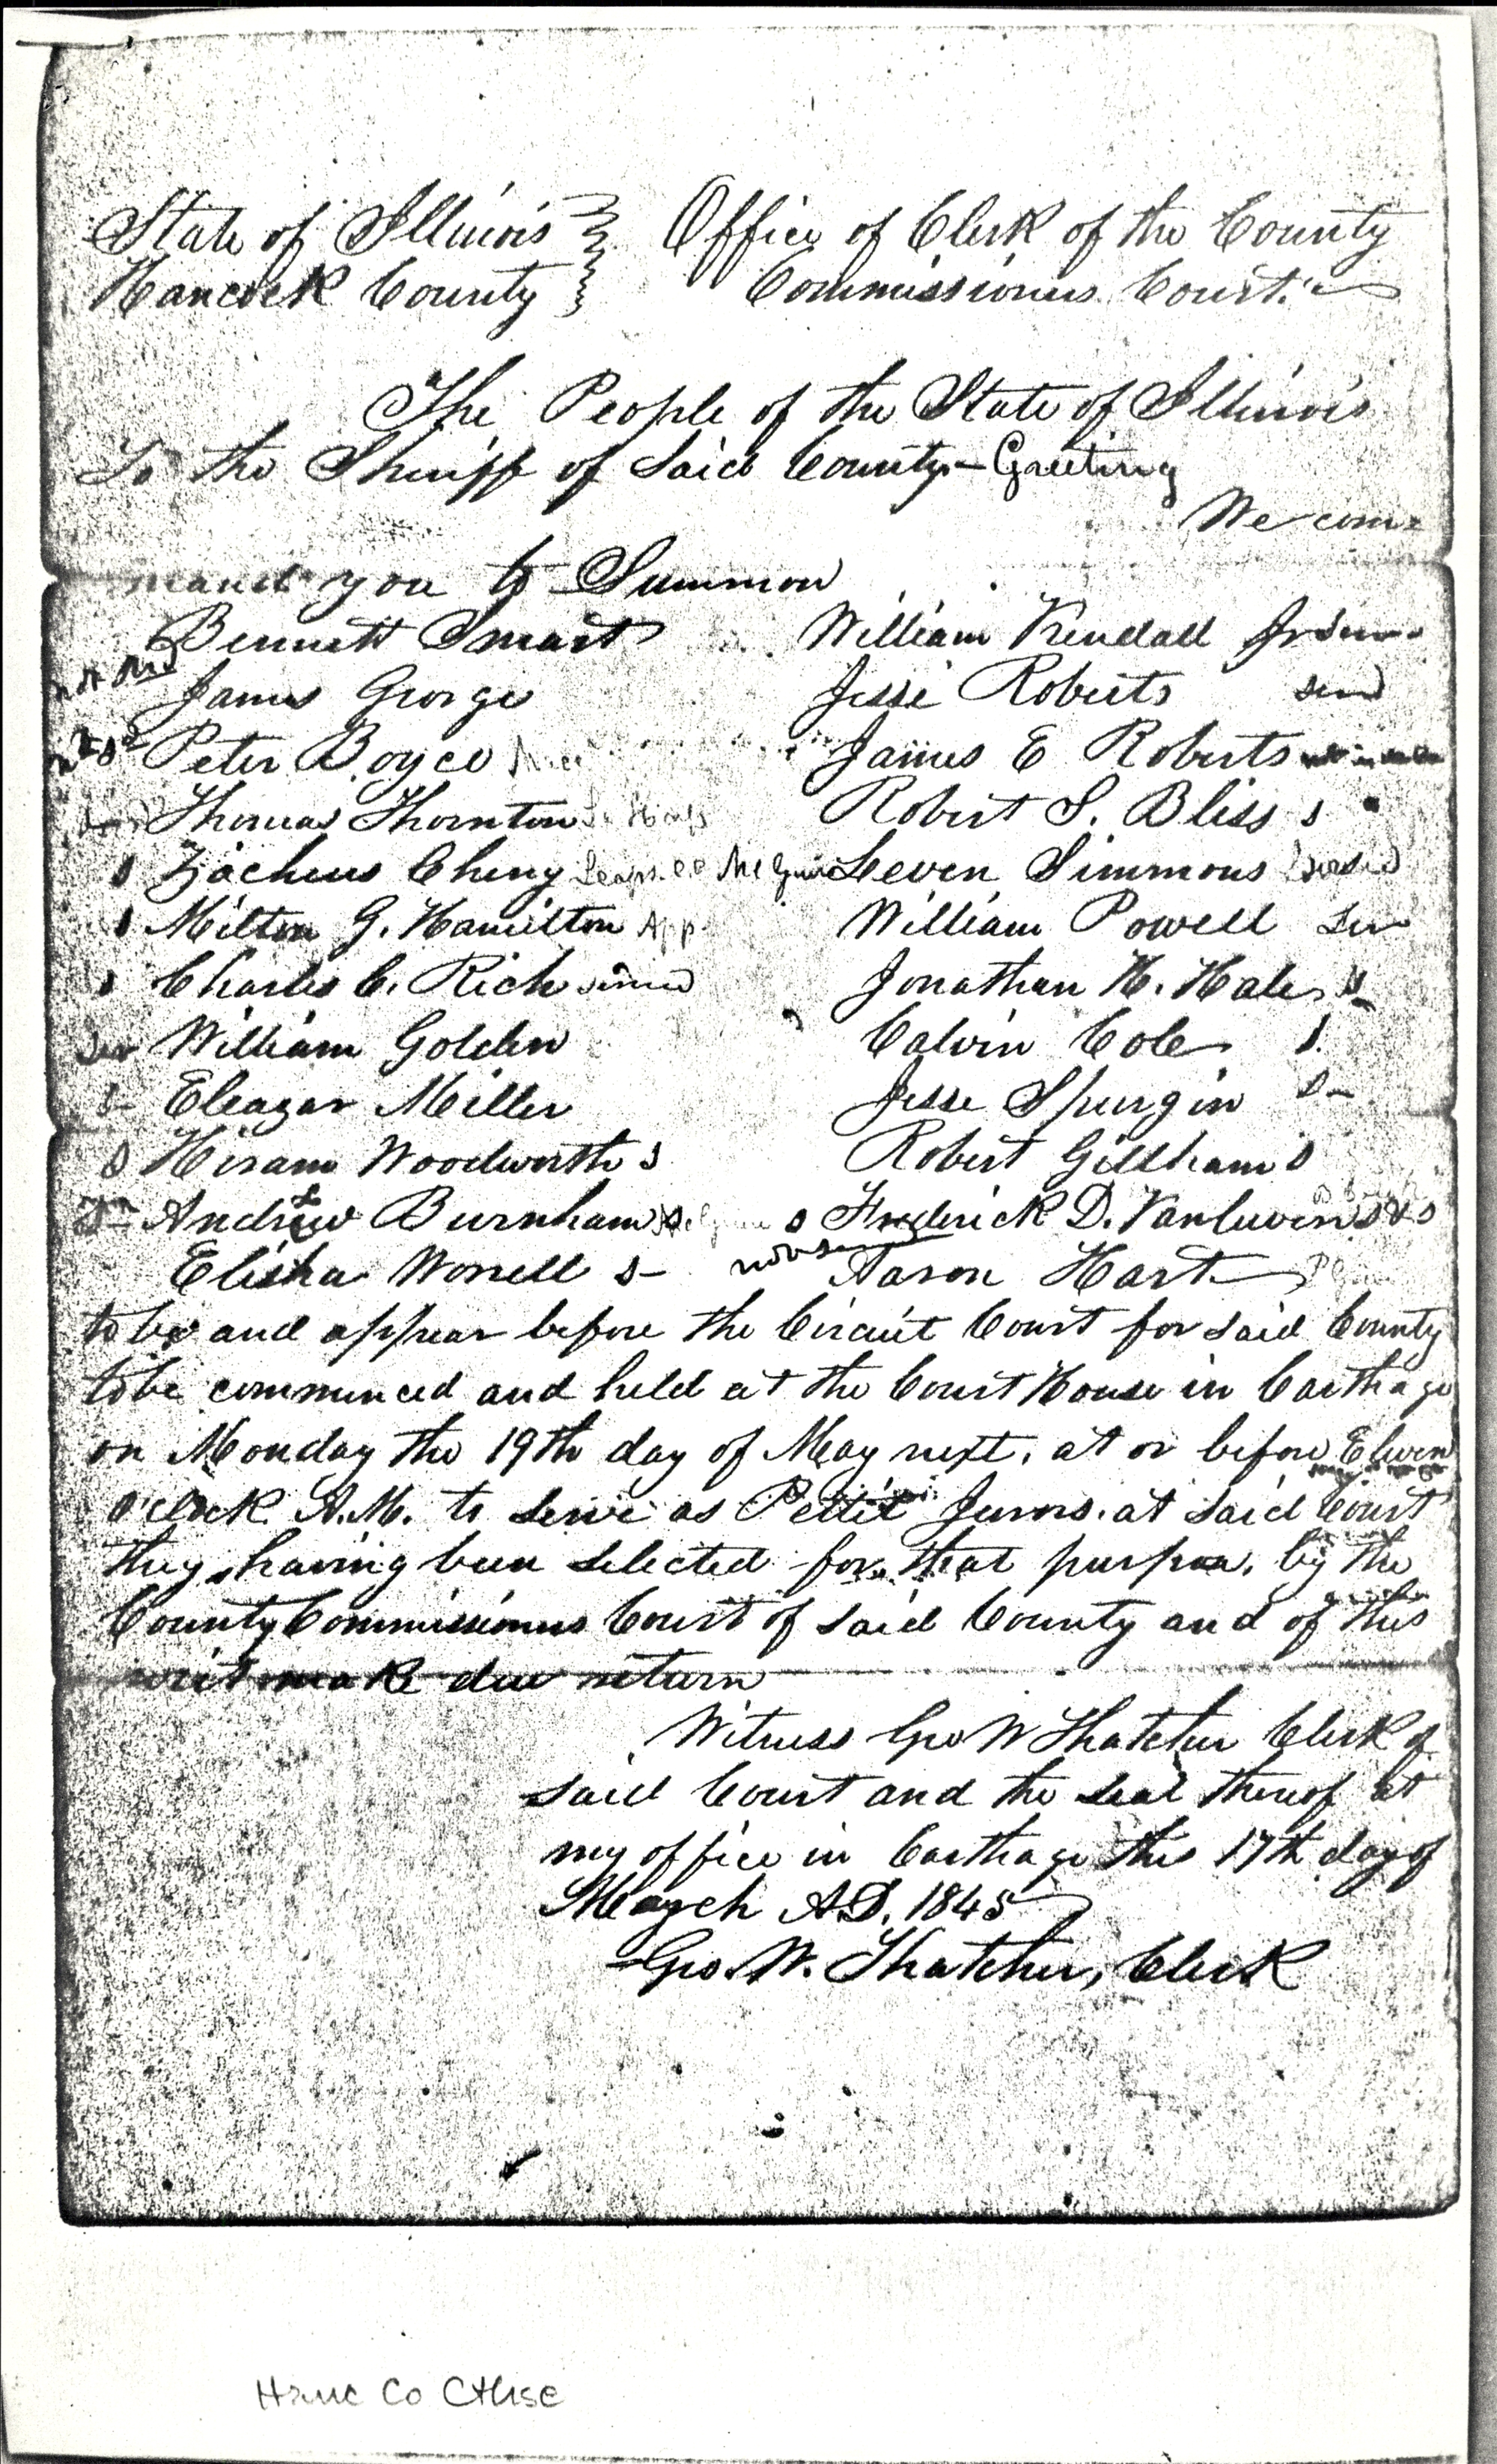 State of Illinois } Office of Clerk of the County
Hancock County } Commissioners Court.
The People of the State of Illinois
To the Sheriff of Said County - Greeting
We com=
mand you to Summon
Bennett Smart William Kendall Jr
not
James George Jesse Roberts
Peter Boyce James E Roberts
Thomas Thornton Robert S. Bliss s
s Zacheus Cheny Leven Simmons
s Milton G. Hamilton App William Powell ser
s Charles C. Rich Jonathan H. Hale s
ser William Golden Calvin Cole s.
s- Eleazar Miller Jesse Spurgin s-
s Hiram Woodworth s Robert Gillham s
Andrew Burnham s Frederick D. Vanluven s
Elisha Worrell s- not Aaron Hart
to be and appear before the Circuit Court for said County
to be commenced and held at the Court House in Carthage
on Monday the 19th day of May next, at or before Eleven
o'clock A.M. to serve as Pettit Jurors. at said Court
they having been selected for that purpose, by the
County Commissioners Court of said County and of this
writ make due return
Witness Geo W Thatcher Clerk of
said Court and the seal thereof at
my office in Carthage this 17th day of
March A.D. 1845
Geo. W. Thatcher, Clerk
Hanc Co CtHse